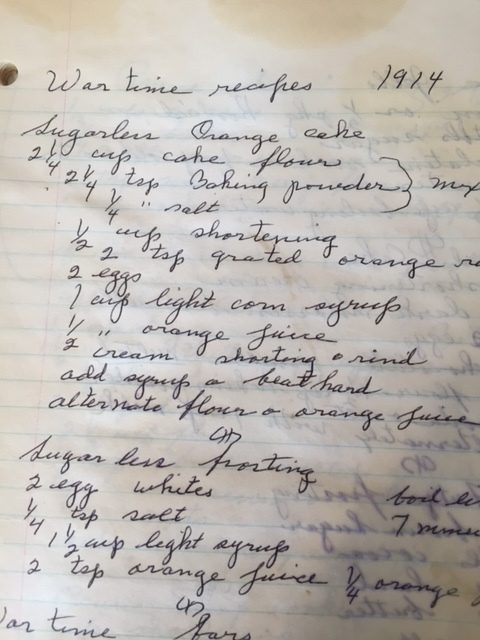 War time recipes 1914
Sugarless Orange cake
2 1/4 cup cake flour
2 1/4 tsp Baking powder } mix
1/4 " salt
1/2 cup shortening
2 tsp grated orange
2 eggs
1 cup light corn syrup
1/2 " orange juice
cream shorting & rind
add syrup & beat hard
alternate flour & orange juice
Sugar less frosting
2 egg whites boil
1/4 tsp salt 7
1 1/2 cup light syrup
2 tsp orange juice 1/4 orange
War time bars